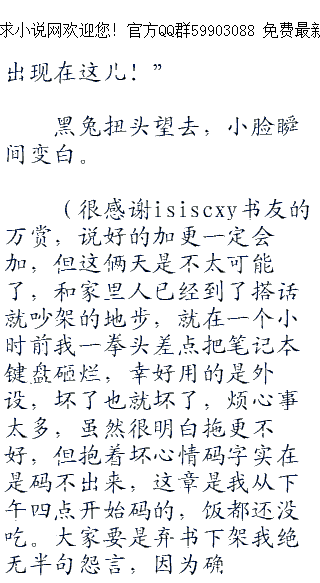 求小说网欢迎您！官方QQ群59903088 免费最新
出现在这儿！”
黑兔扭头望去，小脸瞬
间变白。
（很感谢isiscxy书友的
万赏，说好的加更一定会
加，但这俩天是不太可能
了，和家里人已经到了搭话
就吵架的地步，就在一个小
时前我一拳头差点把笔记本
键盘砸烂，幸好用的是外
设，坏了也就坏了，烦心事
太多，虽然很明白拖更不
好，但抱着坏心情码字实在
是码不出来，这章是我从下
午四点开始码的，饭都还没
吃。大家要是弃书下架我绝
无半句怨言，因为确